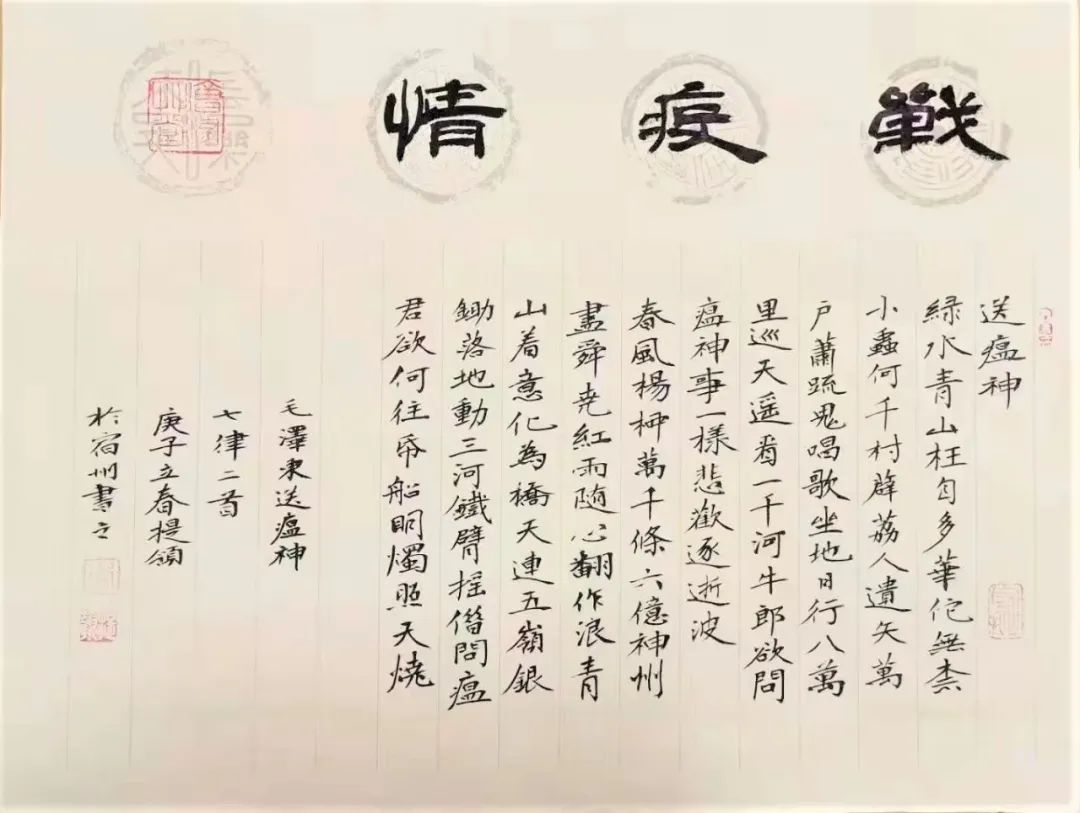 戰疫情
送瘟神
綠水青山枉自多華佗無柰
小蟲何千村薜荔人遺矢萬
户蕭疏鬼唱歌坐地日行八萬
里巡天遥看一千河牛郎欲問
瘟神事一樣悲歡逐逝波
春風楊柳萬千條六億神州
盡舜尭紅雨随心翻作浪青
山着意化為橋天連五嶺銀
鋤落地動三河鐵臂摇借問瘟
君欲何往帋船眀燭照天燒
毛澤東送瘟神
七律二首
庚子立春提領
於宿州書之